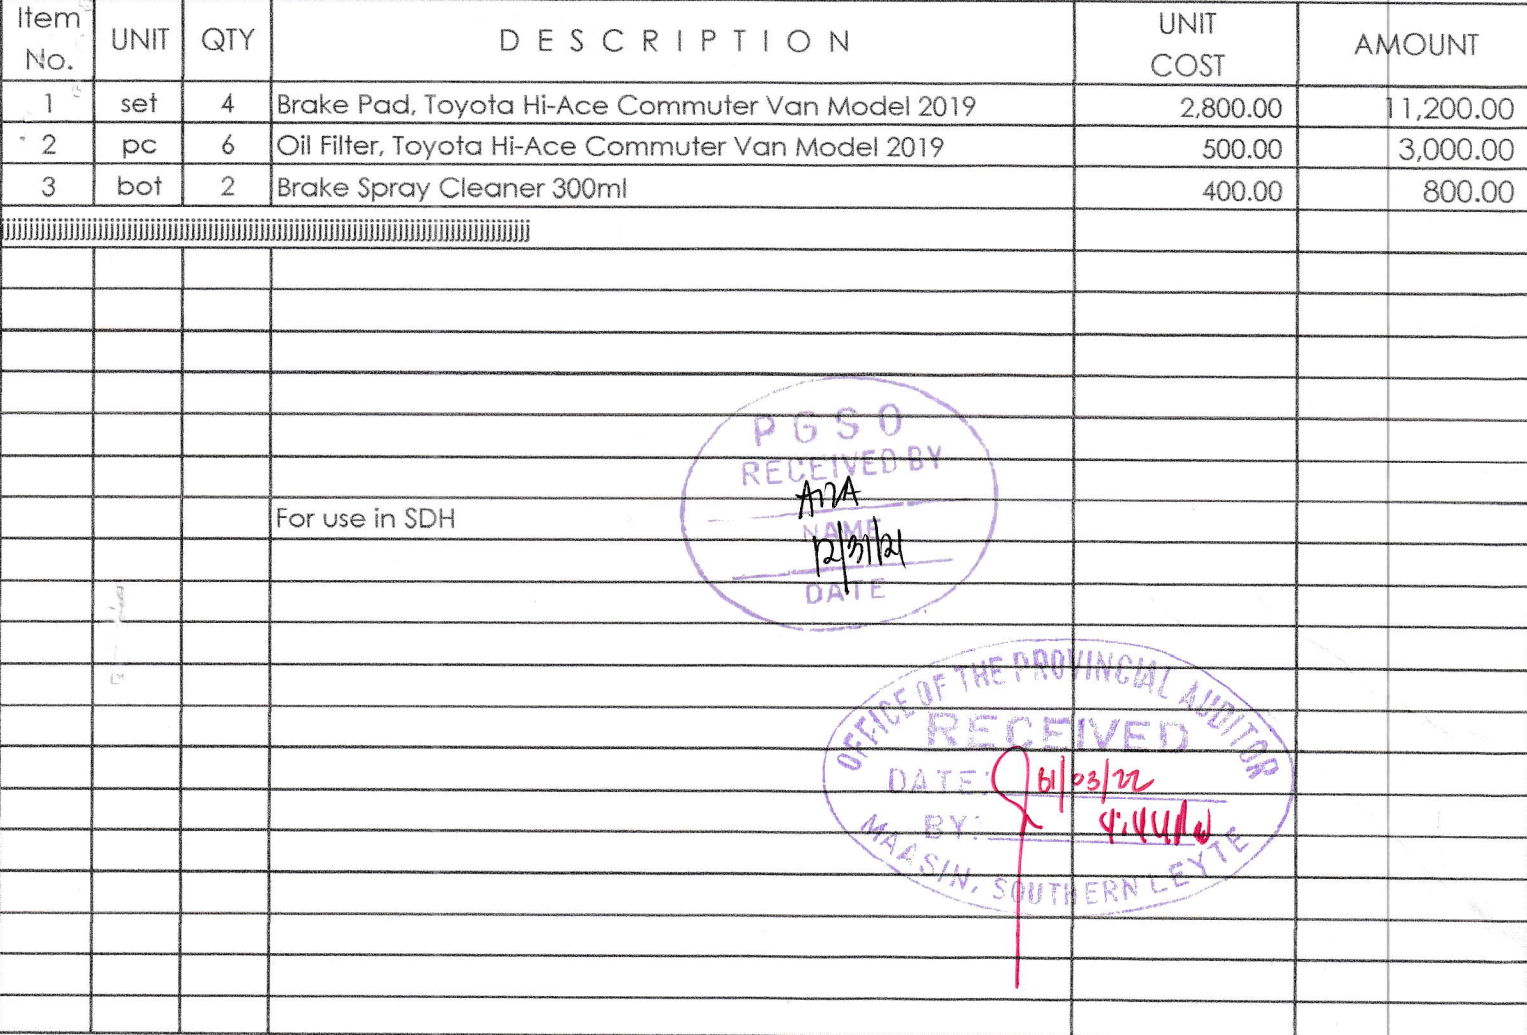 Item No. UNIT QTY DESCRIPTION UNIT COST AMOUNT
1 set 4 Brake Pad, Toyota Hi-Ace Commuter Van Model 2019 2,800.00 11,200.00
2 pc 6 Oil Filter, Toyota Hi-Ace Commuter Van Model 2019 500.00 3,000.00
3 bot 2 Brake Spray Cleaner 300ml 400.00 800.00
PGSO
RECEIVED BY
For use in SDH
NAME
12/31/21
DATE
OFFICE OF THE PROVINCIAL AUDITOR
RECEIVED
DATE: 01/03/22
BY:
MAASIN, SOUTHERN LEYTE